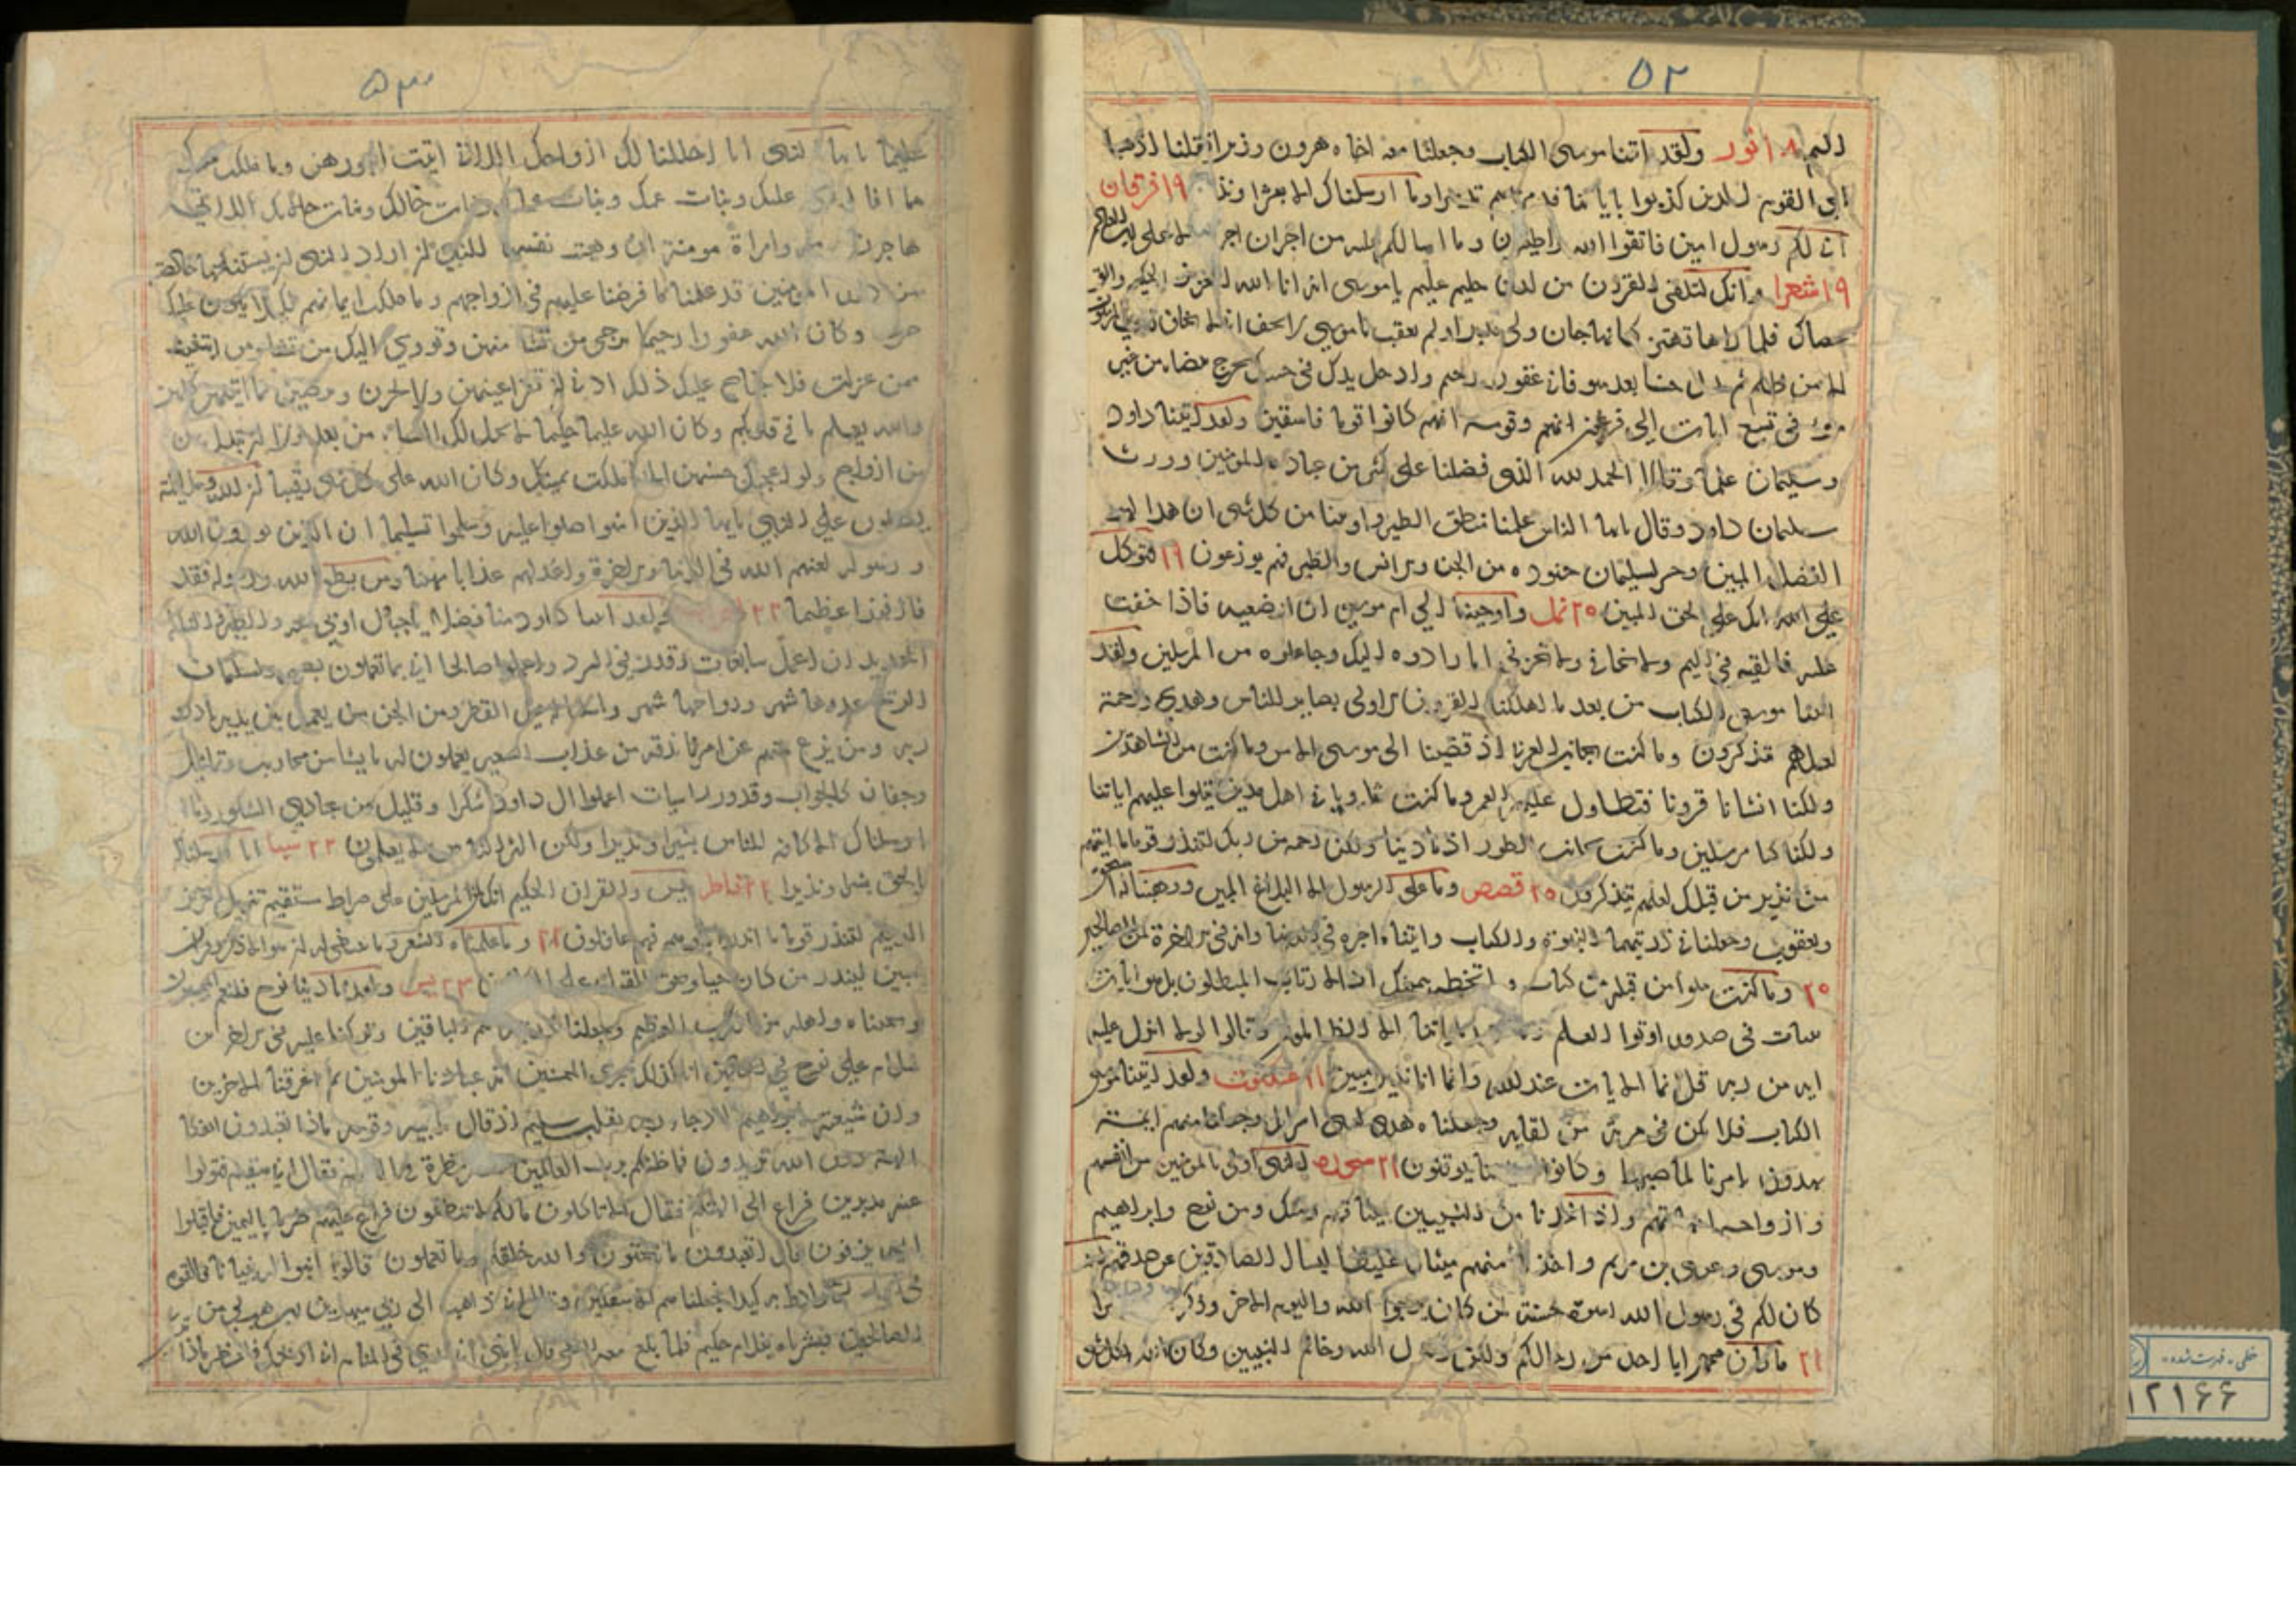 ٥٢
اليم ١٨ نور ولقد اتينا موسى الكتاب وجعلنا معه اخاه هرون وزيرا فقلنا اذهبا
الى القوم الذين كذبوا باياتنا فدمرناهم تدميرا وما ارسلناك الا مبشرا ونذيرا ١٩ فرقان
انى لكم رسول امين فاتقوا الله واطيعون وما اسالكم عليه من اجر ان اجرى الا على رب العالمين
١٩ شعرا وانك لتلقى القران من لدن حكيم عليم يا موسى انه انا الله العزيز الحكيم والق
عصاك فلما راها تهتز كانها جان ولى مدبرا ولم يعقب يا موسى لا تخف انى لا يخاف لدى المرسلون
الا من ظلم ثم بدل حسنا بعد سو فانى غفور رحيم وادخل يدك فى جيبك تخرج بيضاء من غير
سوء فى تسع ايات الى فرعون وقومه انهم كانوا قوما فاسقين ولقد اتينا داود
وسليمان علما وقالا الحمد لله الذى فضلنا على كثير من عباده المومنين وورث
سليمان داود وقال يا ايها الناس علمنا منطق الطير واوتينا من كل شى ان هذا لهو
الفضل المبين وحشر لسليمان جنوده من الجن والانس والطير فهم يوزعون ١٩ فتوكل
على الله انك على الحق المبين ٢٠ نمل واوحينا الى ام موسى ان ارضعيه فاذا خفت
عليه فالقيه فى اليم ولا تخافى ولا تحزنى انا رادوه اليك وجاعلوه من المرسلين ولقد
اتينا موسى الكتاب من بعد ما اهلكنا القرون الاولى بصاير للناس وهدى ورحمة
لعلهم يتذكرون وما كنت بجانب الغربى اذ قضينا الى موسى الامر وما كنت من الشاهدين
ولكنا انشانا قرونا فتطاول عليهم العمر وما كنت ثاويا فى اهل مدين تتلوا عليهم اياتنا
ولكنا كنا مرسلين وما كنت بجانب الطور اذ نادينا ولكن رحمه من ربك لتنذر قوما ما اتيهم
من نذير من قبلك لعلهم يتذكرون ٢٠ قصص وما على الرسول الا البلاغ المبين ووهبنا له اسحق
ويعقوب وجعلنا فى ذريتهما النبوة والكتاب واتيناه اجره فى الدنيا وانه فى الاخرة لمن الصالحين
٢٠ وما كنت تتلوا من قبله من كتاب ولا تخطه بيمينك اذا لارتاب المبطلون بل هو ايات
بينات فى صدور اوتوا العلم وما يجحد باياتنا الا الظالمون وقالوا لولا انزل عليه
ايه من ربه قل انما الايات عند الله وانما انا نذير مبين ٢١ عنكبوت ولقد اتينا موسى
الكتاب فلا تكن فى مرية من لقايه وجعلناه هدى لبنى اسرايل وجعلنا منهم ايمة
يهدون بامرنا لما صبروا وكانوا باياتنا يوقنون ٢١ سجده النبى اولى بالمومنين من انفسهم
وازواجه امهاتهم واذ اخذنا من النبيين ميثاقهم ومنك ومن نوح وابراهيم
وموسى وعيسى بن مريم واخذنا منهم ميثاقا غليظا ليسال الصادقين عن صدقهم لقد
كان لكم فى رسول الله اسوة حسنة لمن كان يرجوا الله واليوم الاخر وذكر
٢١ ما كان محمد ابا احد من رجالكم ولكن رسول الله وخاتم النبيين وكان الله بكل شى
٥٣
عليما يا ايها النبى انا احللنا لك ازواجك اللاتى اتيت اجورهن وما ملكت يمينك
مما افا الله عليك وبنات عمك وبنات عماتك وبنات خالك وبنات خالاتك اللاتى
هاجرن معك وامراة مومنة ان وهبت نفسها للنبى ان اراد النبى ان يستنكحها خالصة
من دون المومنين قد علمنا ما فرضنا عليهم فى ازواجهم وما ملكت ايمانهم لكيلا يكون عليك
حرج وكان الله غفورا رحيما ترجى من تشا منهن وتووى اليك من تشا ومن ابتغيت
ممن عزلت فلا جناح عليك ذلك ادنى ان تقر اعينهن ولا يحزن ويرضين بما اتيتهن كلهن
والله يعلم ما فى قلوبكم وكان الله عليما حليما لا يحل لك النساء من بعد ولا ان تبدل بهن
من ازواج ولو اعجبك حسنهن الا ما ملكت يمينك وكان الله على كل شى رقيبا ان الله وملايكته
يصلون على النبى يا ايها الذين امنوا صلوا عليه وسلموا تسليما ان الذين يوذون الله
ورسوله لعنهم الله فى الدنيا والاخرة واعد لهم عذابا مهينا ومن يطع الله ورسوله فقد
فاز فوزا عظيما ٢٢ ولقد اتينا داود منا فضلا يا جبال اوبى معه والطير والنا له
الحديد ان اعمل سابغات وقدر فى السرد واعملوا صالحا انى بما تعملون بصير ولسليمان
الريح غدوها شهر ورواحها شهر واسلنا له عين القطر ومن الجن من يعمل بين يديه باذن
ربه ومن يزغ منهم عن امرنا نذقه من عذاب السعير يعملون له ما يشا من محاريب وتماثيل
وجفان كالجواب وقدور راسيات اعملوا ال داود شكرا وقليل من عبادى الشكور وما
ارسلناك الا كافه للناس بشيرا ونذيرا ولكن اكثر الناس لا يعلمون ٢٢ سبا انا ارسلناك
بالحق بشيرا ونذيرا ٢٢ فاطر يس والقران الحكيم انك لمن المرسلين على صراط مستقيم تنزيل العزيز
الرحيم لتنذر قوما ما انذر اباوهم فهم غافلون ٢٢ وما علمناه الشعر وما ينبغى له ان هو الا ذكر وقران
مبين لينذر من كان حيا ويحق القول على الكافرين ٢٣ يس ولقد نادينا نوح فلنعم المجيبون
ونجيناه واهله من الكرب العظيم وجعلنا ذريته هم الباقين وتركنا عليه فى الاخرين
سلام على نوح فى العالمين انا كذلك نجزى المحسنين انه من عبادنا المومنين ثم اغرقنا الاخرين
وان من شيعته لابراهيم اذ جاء ربه بقلب سليم اذ قال لابيه وقومه ماذا تعبدون ائفكا
الهة دون الله تريدون فما ظنكم برب العالمين فنظر نظرة فى النجوم فقال انى سقيم فتولوا
عنه مدبرين فراغ الى الهتهم فقال الا تاكلون ما لكم لا تنطقون فراغ عليهم ضربا باليمين فاقبلوا
اليه يزفون قال اتعبدون ما تنحتون والله خلقكم وما تعملون قالوا ابنوا له بنيانا فالقوه
فى الجحيم فارادوا به كيدا فجعلناهم الاسفلين وقال انى ذاهب الى ربى سيهدين رب هب لى من
الصالحين فبشرناه بغلام حليم فلما بلغ معه السعى قال يا بنى انى ارى فى المنام انى اذبحك فانظر ماذا
خطى - فهرست شده
١٢١٦٦